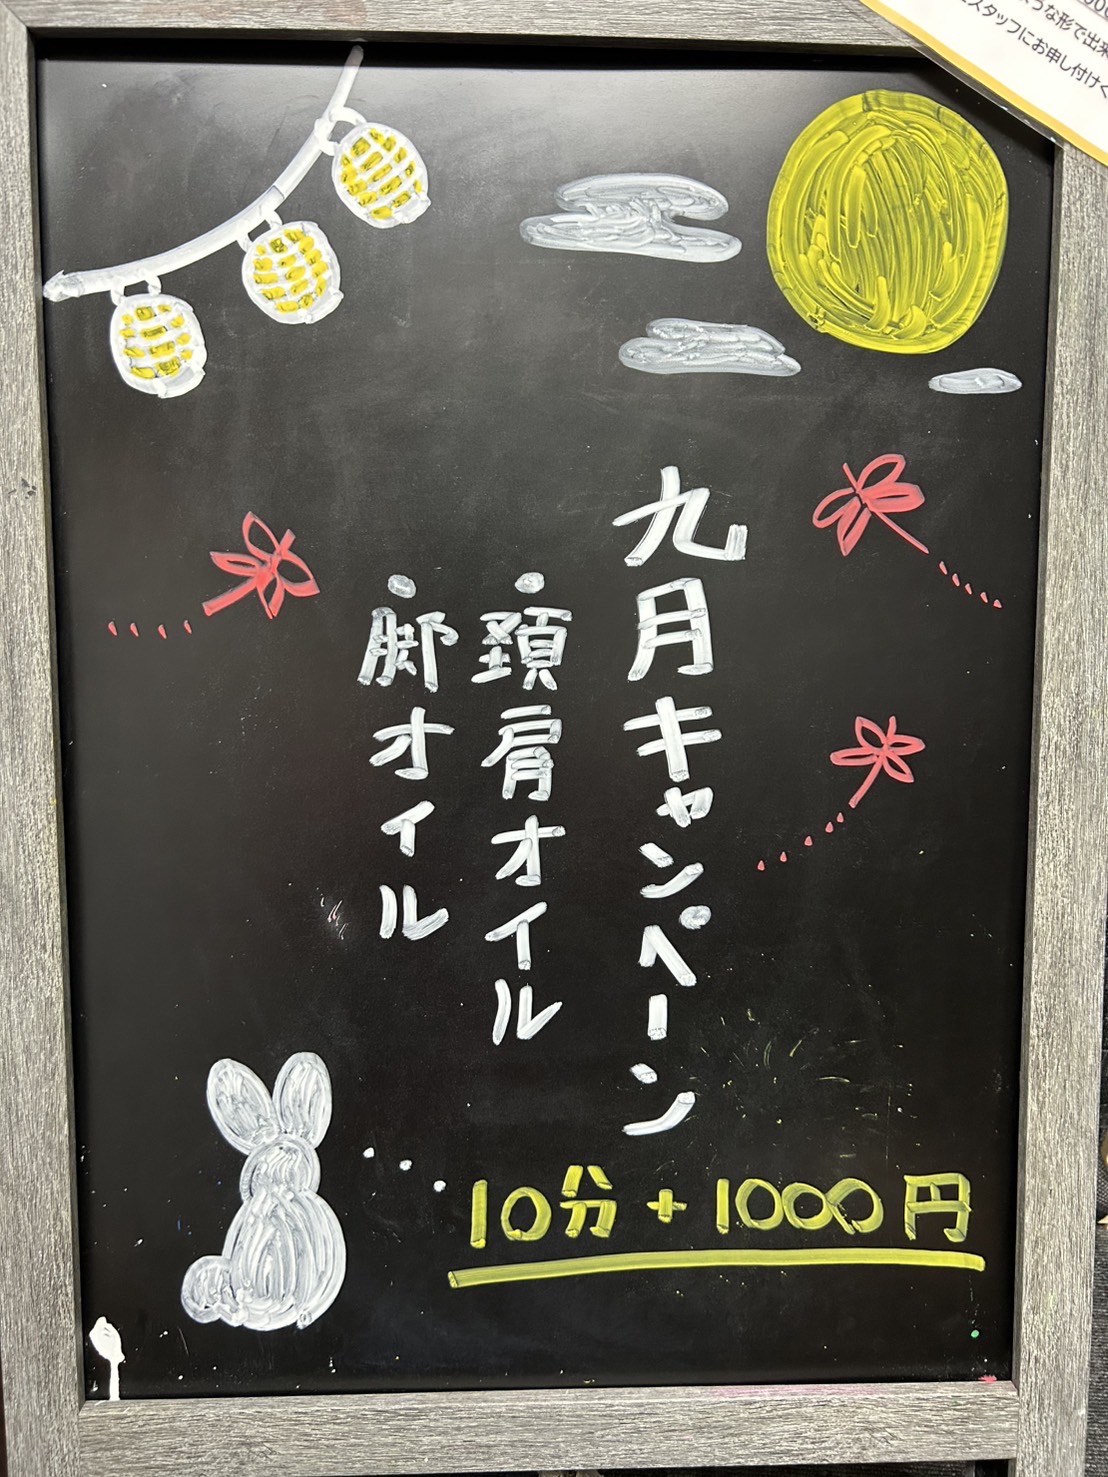 うな形で出来
スタッフにお申し付けく
九月キャンペーン
・頚肩オイル
・脚オイル
10分+1000円